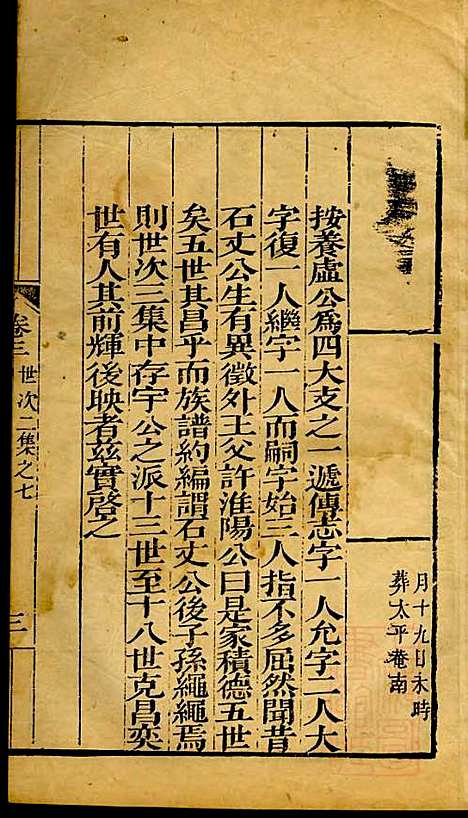 月十九日未時
葬太平菴南
按養虛公爲四大支之一遞傳志字一人允字二人大
字復一人繼字一人而嗣字始三人指不多屈然聞昔
石丈公生有異徵外王父許淮陽公曰是家積德五世
矣五世其昌乎而族譜約編謂石丈公後子孫繩繩焉
則世次三集中存宇公之派十三世至十八世克昌奕
世有人其前輝後映者玆實啓之
卷三 世次二集之七 三